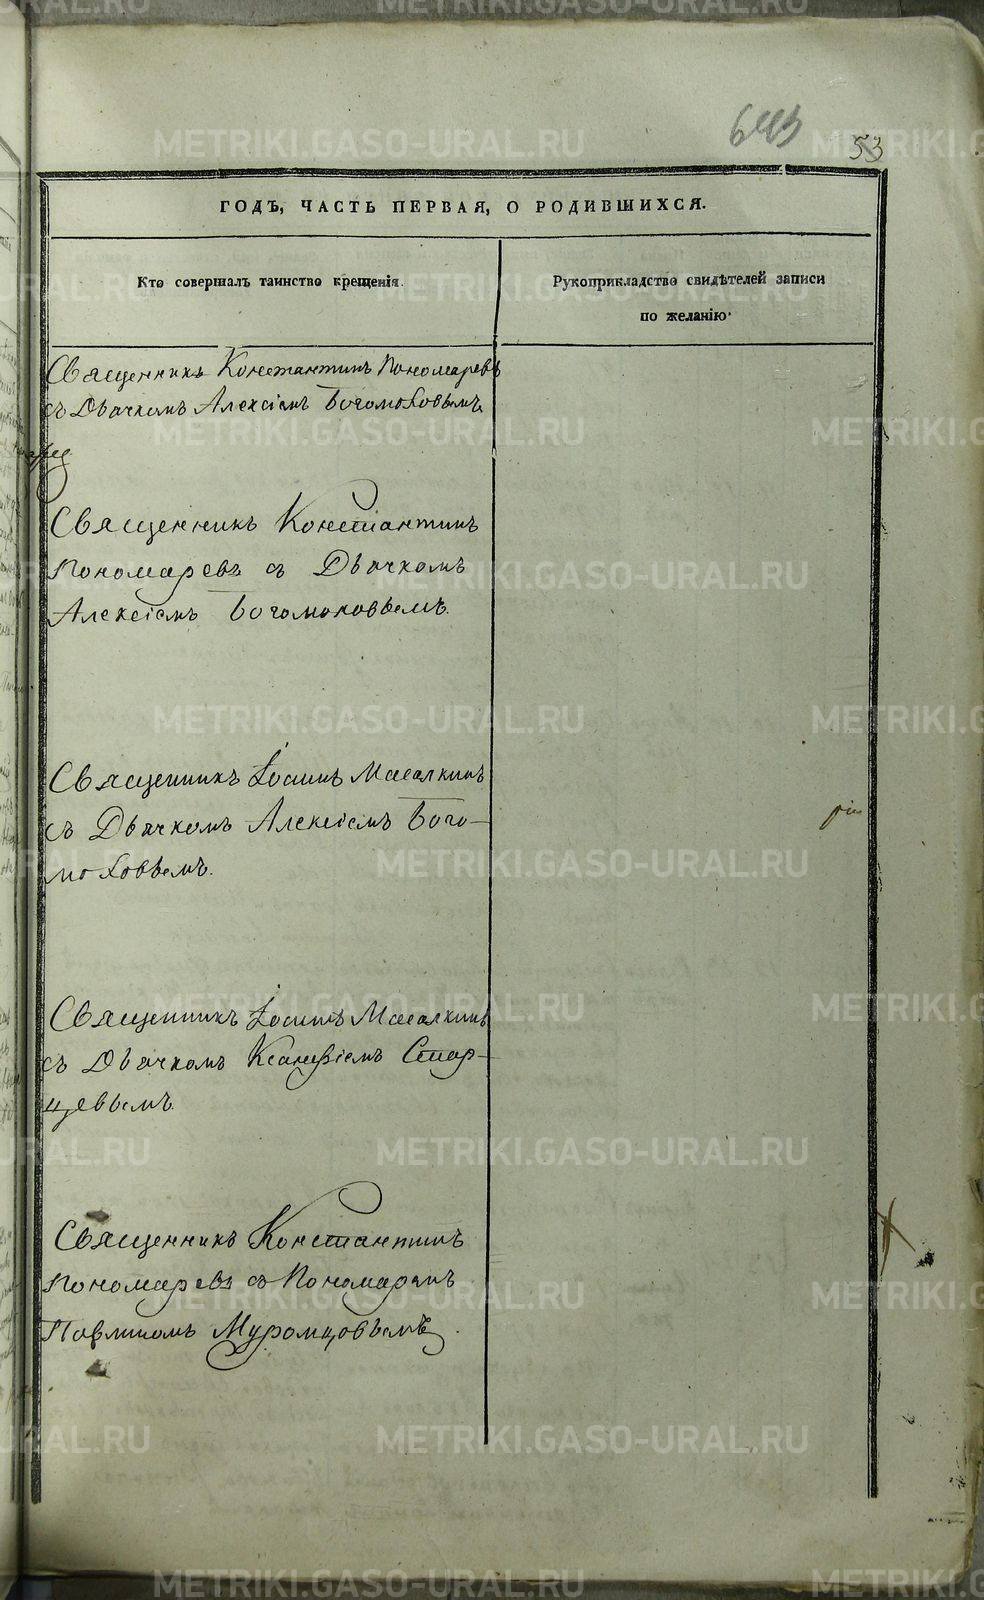 643
53
ГОДЪ, ЧАСТЬ ПЕРВАЯ, О РОДИВШИХСЯ.
Кто совершалъ таинство крещенія.
Рукоприкладство свидѣтелей записи
по желанію
Священникъ Константинъ Пономаревъ
съ Дьячкомъ Алексіемъ Богомоловымъ
Священникъ Константинъ
Пономаревъ съ Дьячкомъ
Алексіемъ Богомоловымъ.
Священникъ Іоаннъ Масалкинъ
съ Дьячкомъ Алексіемъ Бого-
моловымъ.
Священникъ Іоаннъ Масалкинъ
съ Дьячкомъ Ксанфіемъ Стар-
цевымъ.
Священникъ Константинъ
Пономаревъ съ Пономаремъ
Павлиномъ Муромцовымъ.
METRIKI.GASO-URAL.RU